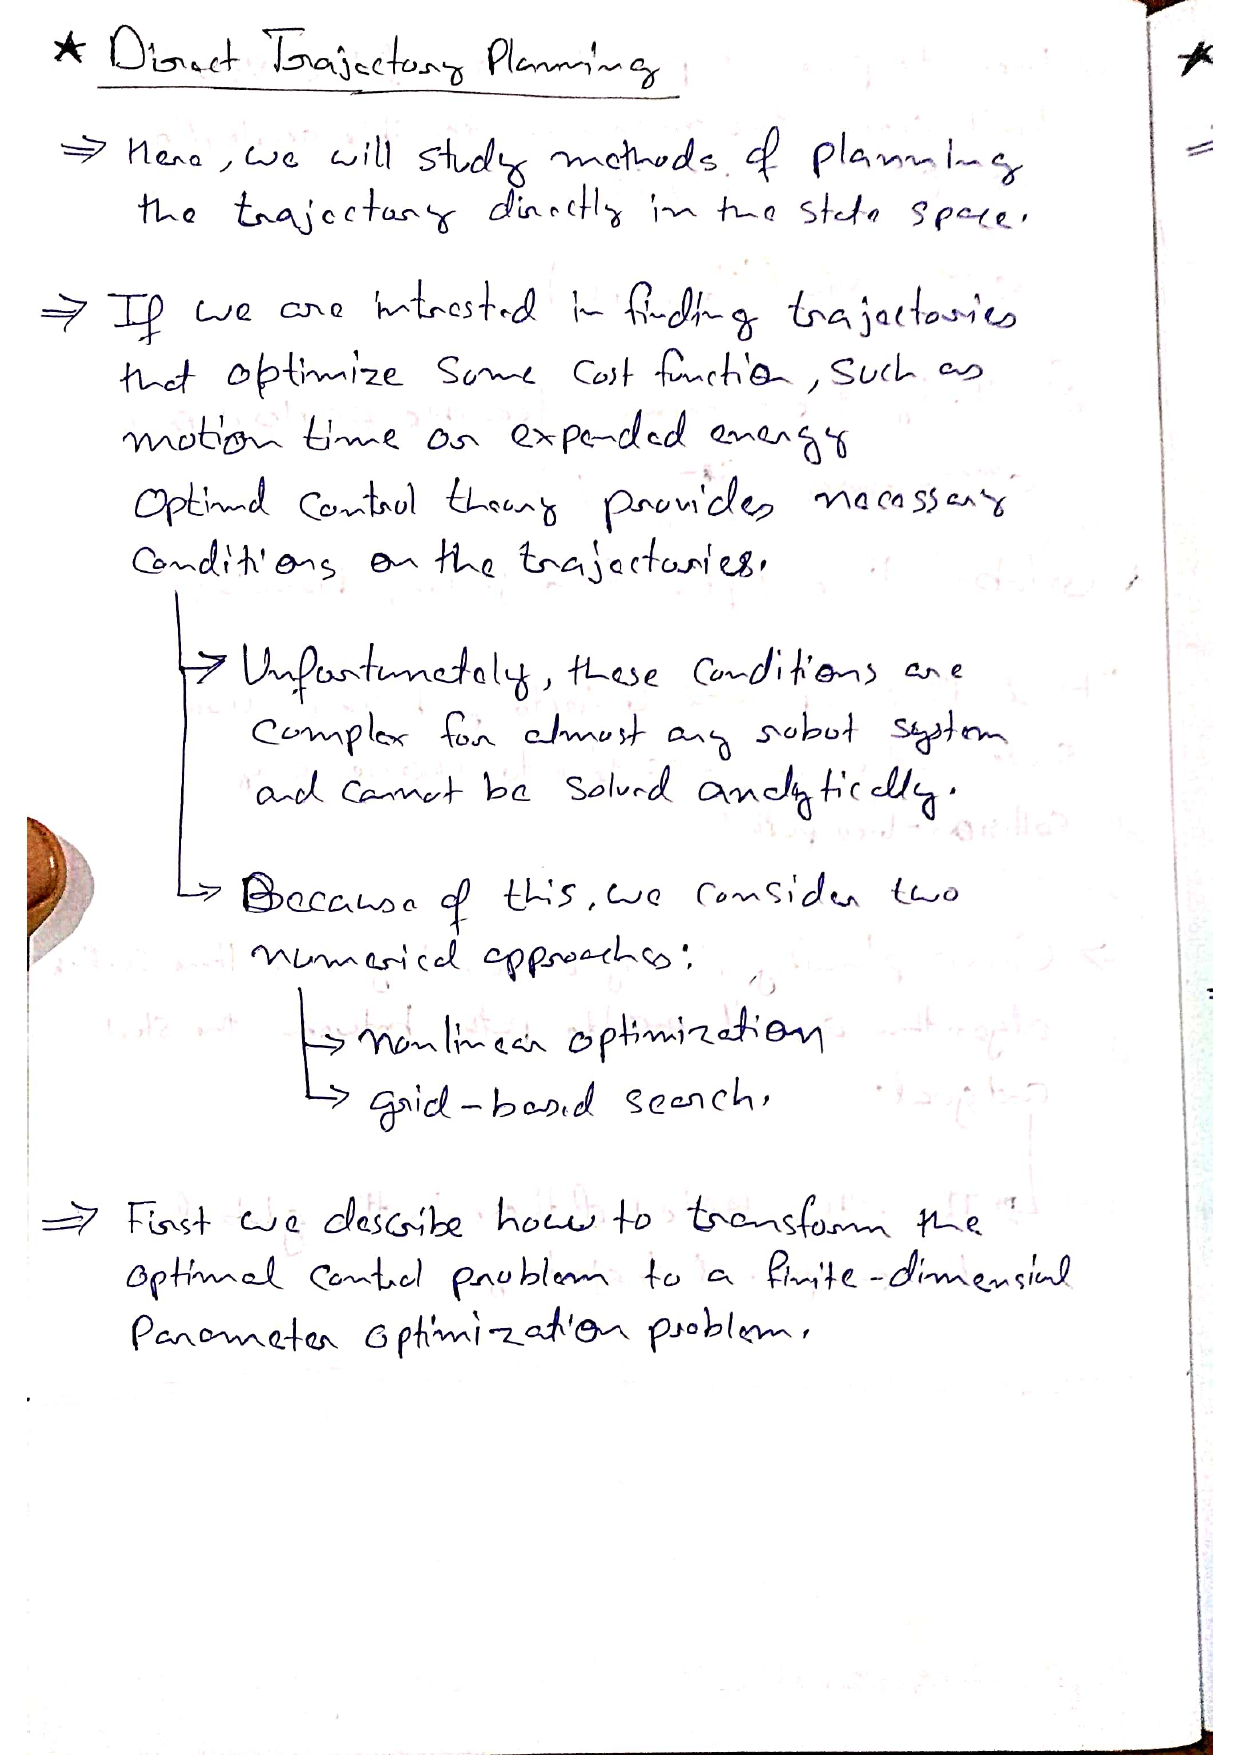 ★ Direct Trajectory Planning
⇒ Here, we will study methods of planning
the trajectory directly in the state space.
⇒ If we are intrested in finding trajectories
that optimize some cost function, such as
motion time or expended energy
Optimal control theory provides necessary
conditions on the trajectories.
→ Unfortunately, these conditions are
complex for almost any robot system
and cannot be solved analytically.
→ Because of this, we consider two
numerical approaches:
→ nonlinear optimization
→ grid-based search.
⇒ First we describe how to transform the
optimal control problem to a finite-dimensional
Parameter optimization problem.